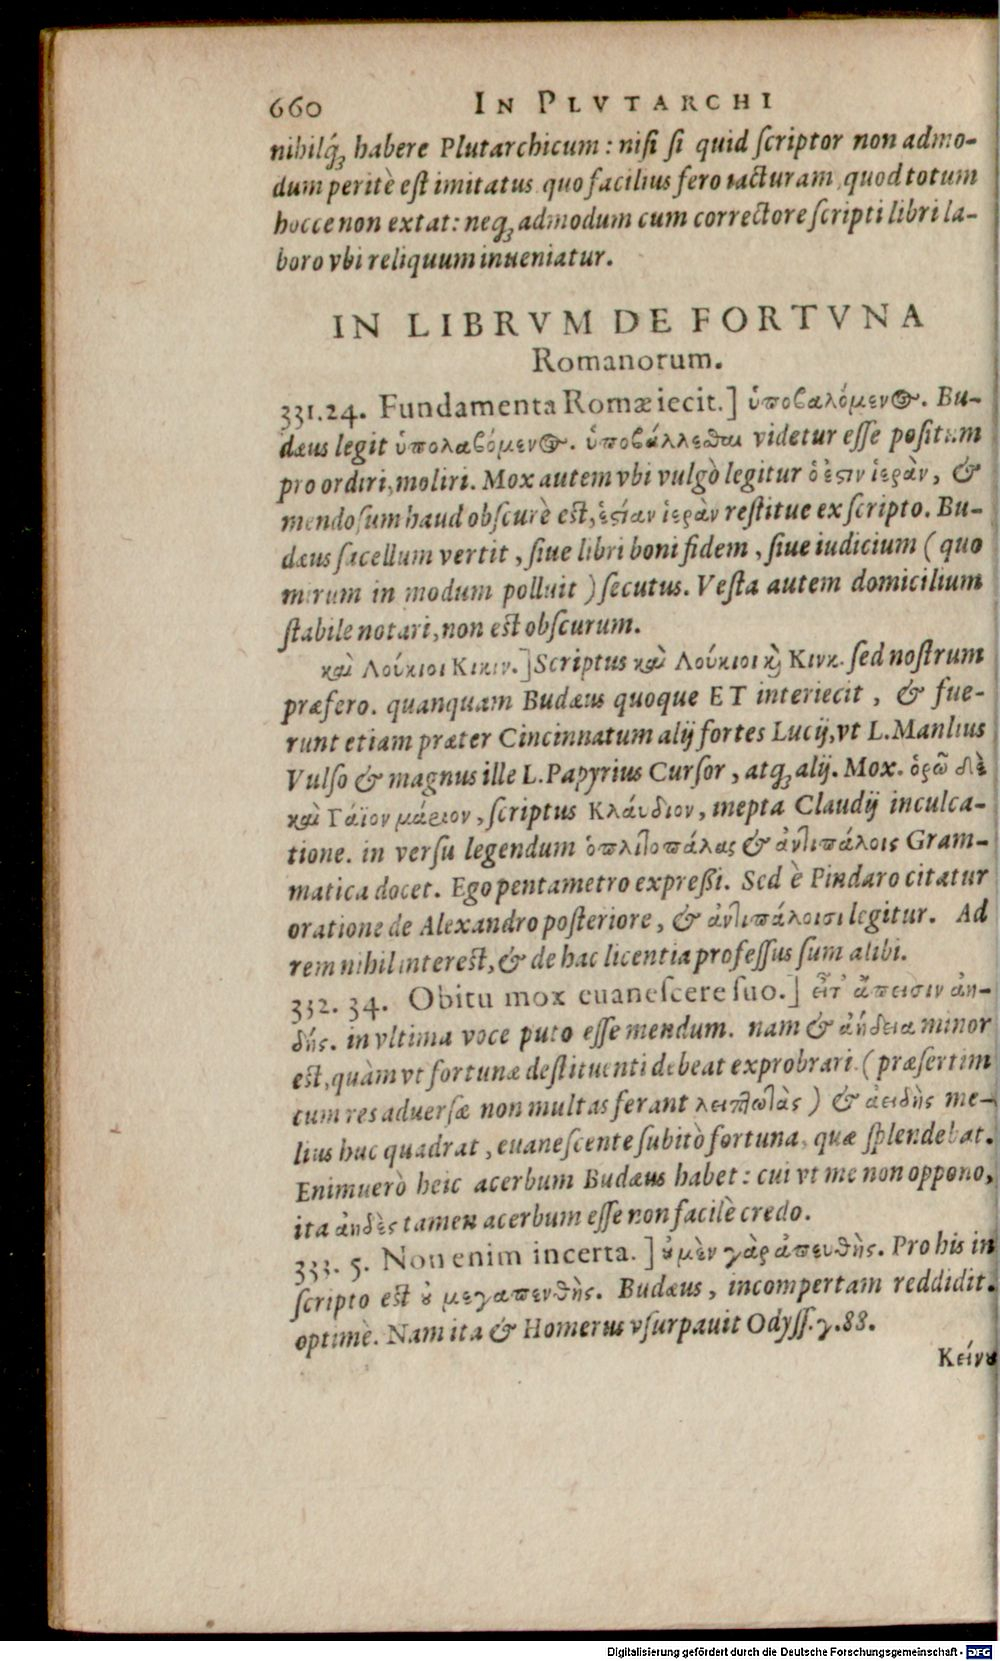 660 IN PLVTARCHI
nihilq́; habere Plutarchicum: nisi si quid scriptor non admo-
dum peritè est imitatus. quo facilius fero iacturam, quod totum
hocce non extat: neq; admodum cum correctore scripti libri la-
boro vbi reliquum inueniatur.
IN LIBRVM DE FORTVNA
Romanorum.
331.24. Fundamenta Romæ iecit.] ὑποβαλόμενος. Bu-
dæus legit ὑπολαβόμενος. ὑποβάλλεσθαι videtur esse positum
pro ordiri, moliri. Mox autem vbi vulgò legitur ὁ ἐστιν ἱερὰν, &
mendosum haud obscurè est, ἑστίαν ἱερὰν restitue ex scripto. Bu-
dæus sacellum vertit, siue libri boni fidem, siue iudicium (quo
mirum in modum polluit) secutus. Vesta autem domicilium
stabile notari, non est obscurum.
καὶ Λούκιοι Κικιν.] Scriptus καὶ Λούκιοι κὶ Κινκ. sed nostrum
præfero. quanquam Budæus quoque ET interiecit, & fue-
runt etiam præter Cincinnatum alij fortes Lucij, vt L. Manlius
Vulso & magnus ille L. Papyrius Cursor, atq; alij. Mox. ὁρῶ δὲ
καὶ Γάϊον μάριον, scriptus Κλάυδιον, inepta Claudij inculca-
tione. in versu legendum ὁπλιτοπάλας & ἀντιπάλοις Gram-
matica docet. Ego pentametro expressi. Sed è Pindaro citatur
oratione de Alexandro posteriore, & ἀντιπάλοισι legitur. Ad
rem nihil interest, & de hac licentia professus sum alibi.
332. 34. Obitu mox euanescere suo.] εἶτ' ἄπεισιν ἀη-
δής. in vltima voce puto esse mendum. nam & ἀήδεια minor
est, quàm vt fortunæ destituenti debeat exprobrari (præsertim
cum res aduersæ non multas ferant λειπ) & ἀειδὴς me-
lius huc quadrat, euanescente subitò fortuna, quæ splendebat.
Enimuerò heic acerbum Budæus habet: cui vt me non oppono,
ita ἀηδὲς tamen acerbum esse non facilè credo.
333. 5. Non enim incerta.] ȣ μὲν γὰρ ἀπευθὴς. Pro his in
scripto est ȣ μεγαπενθὴς. Budæus, incompertam reddidit.
optimè. Nam ita & Homerus vsurpauit Odyss. γ. 88.
Κείνȣ
Digitalisierung gefördert durch die Deutsche Forschungsgemeinschaft - DFG